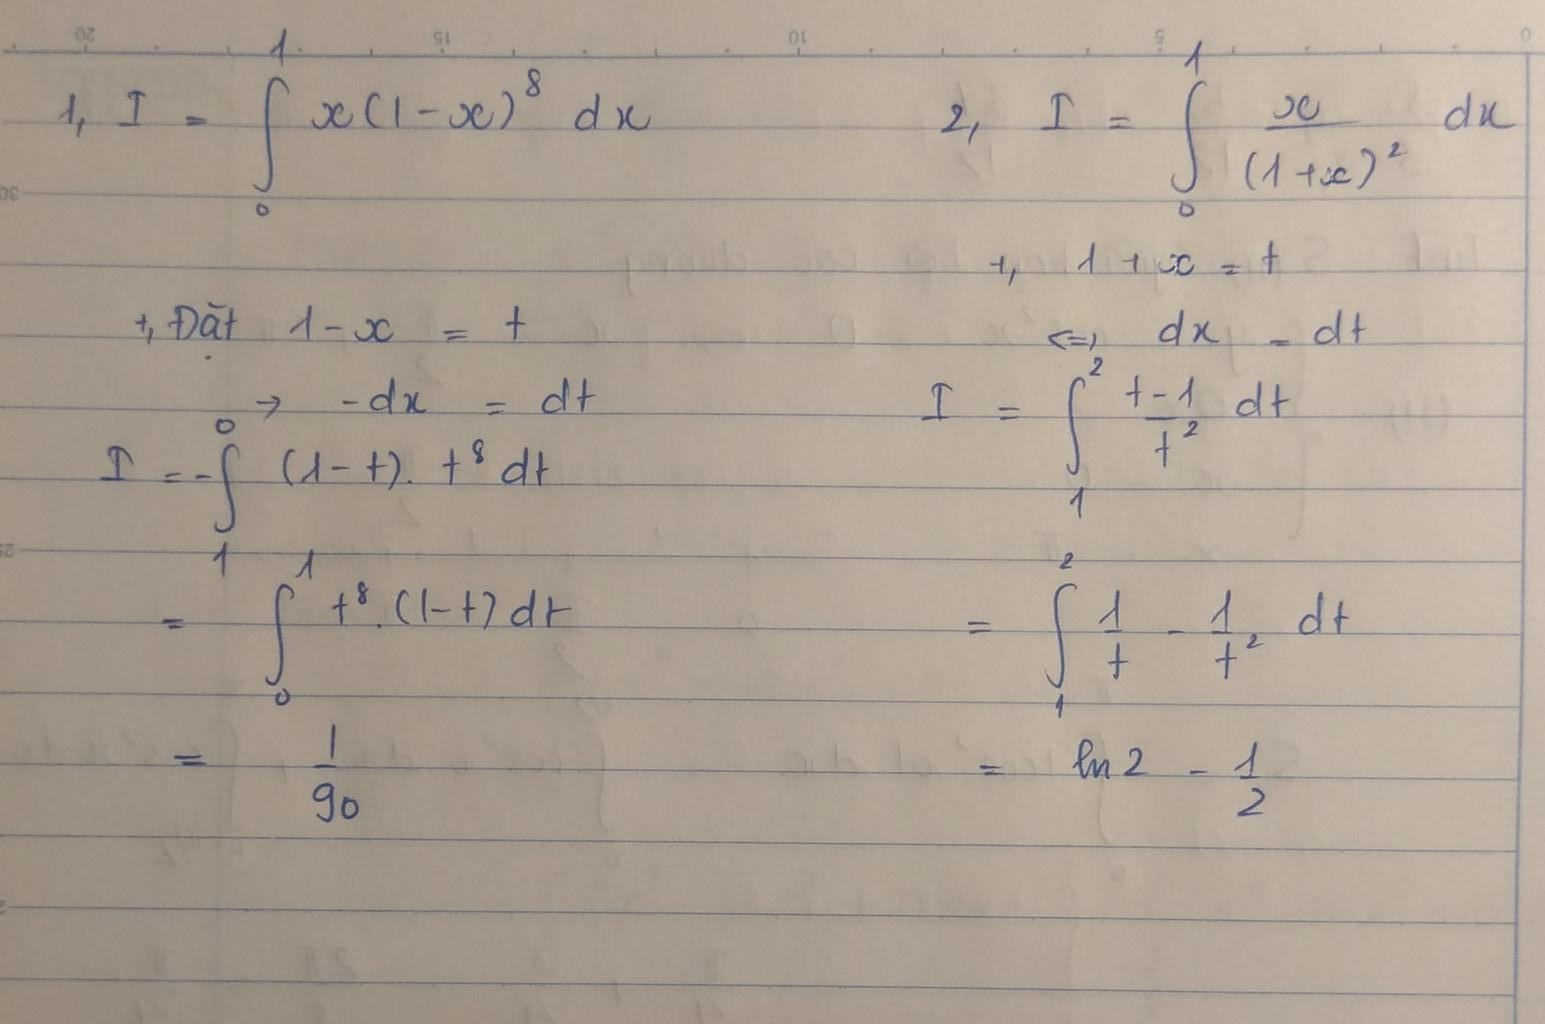 1, I = ∫₀¹ x(1-x)⁸ dx
+, Đặt 1-x = t
→ -dx = dt
I = -∫₁⁰ (1-t). t⁸ dt
= ∫₀¹ t⁸.(1-t) dt
= 1/90
2, I = ∫₀¹ x/(1+x)² dx
+, 1+x = t
<=> dx = dt
I = ∫₁² (t-1)/t² dt
= ∫₁² 1/t - 1/t² dt
= ln2 - 1/2
20 15 10 5 0
30
25